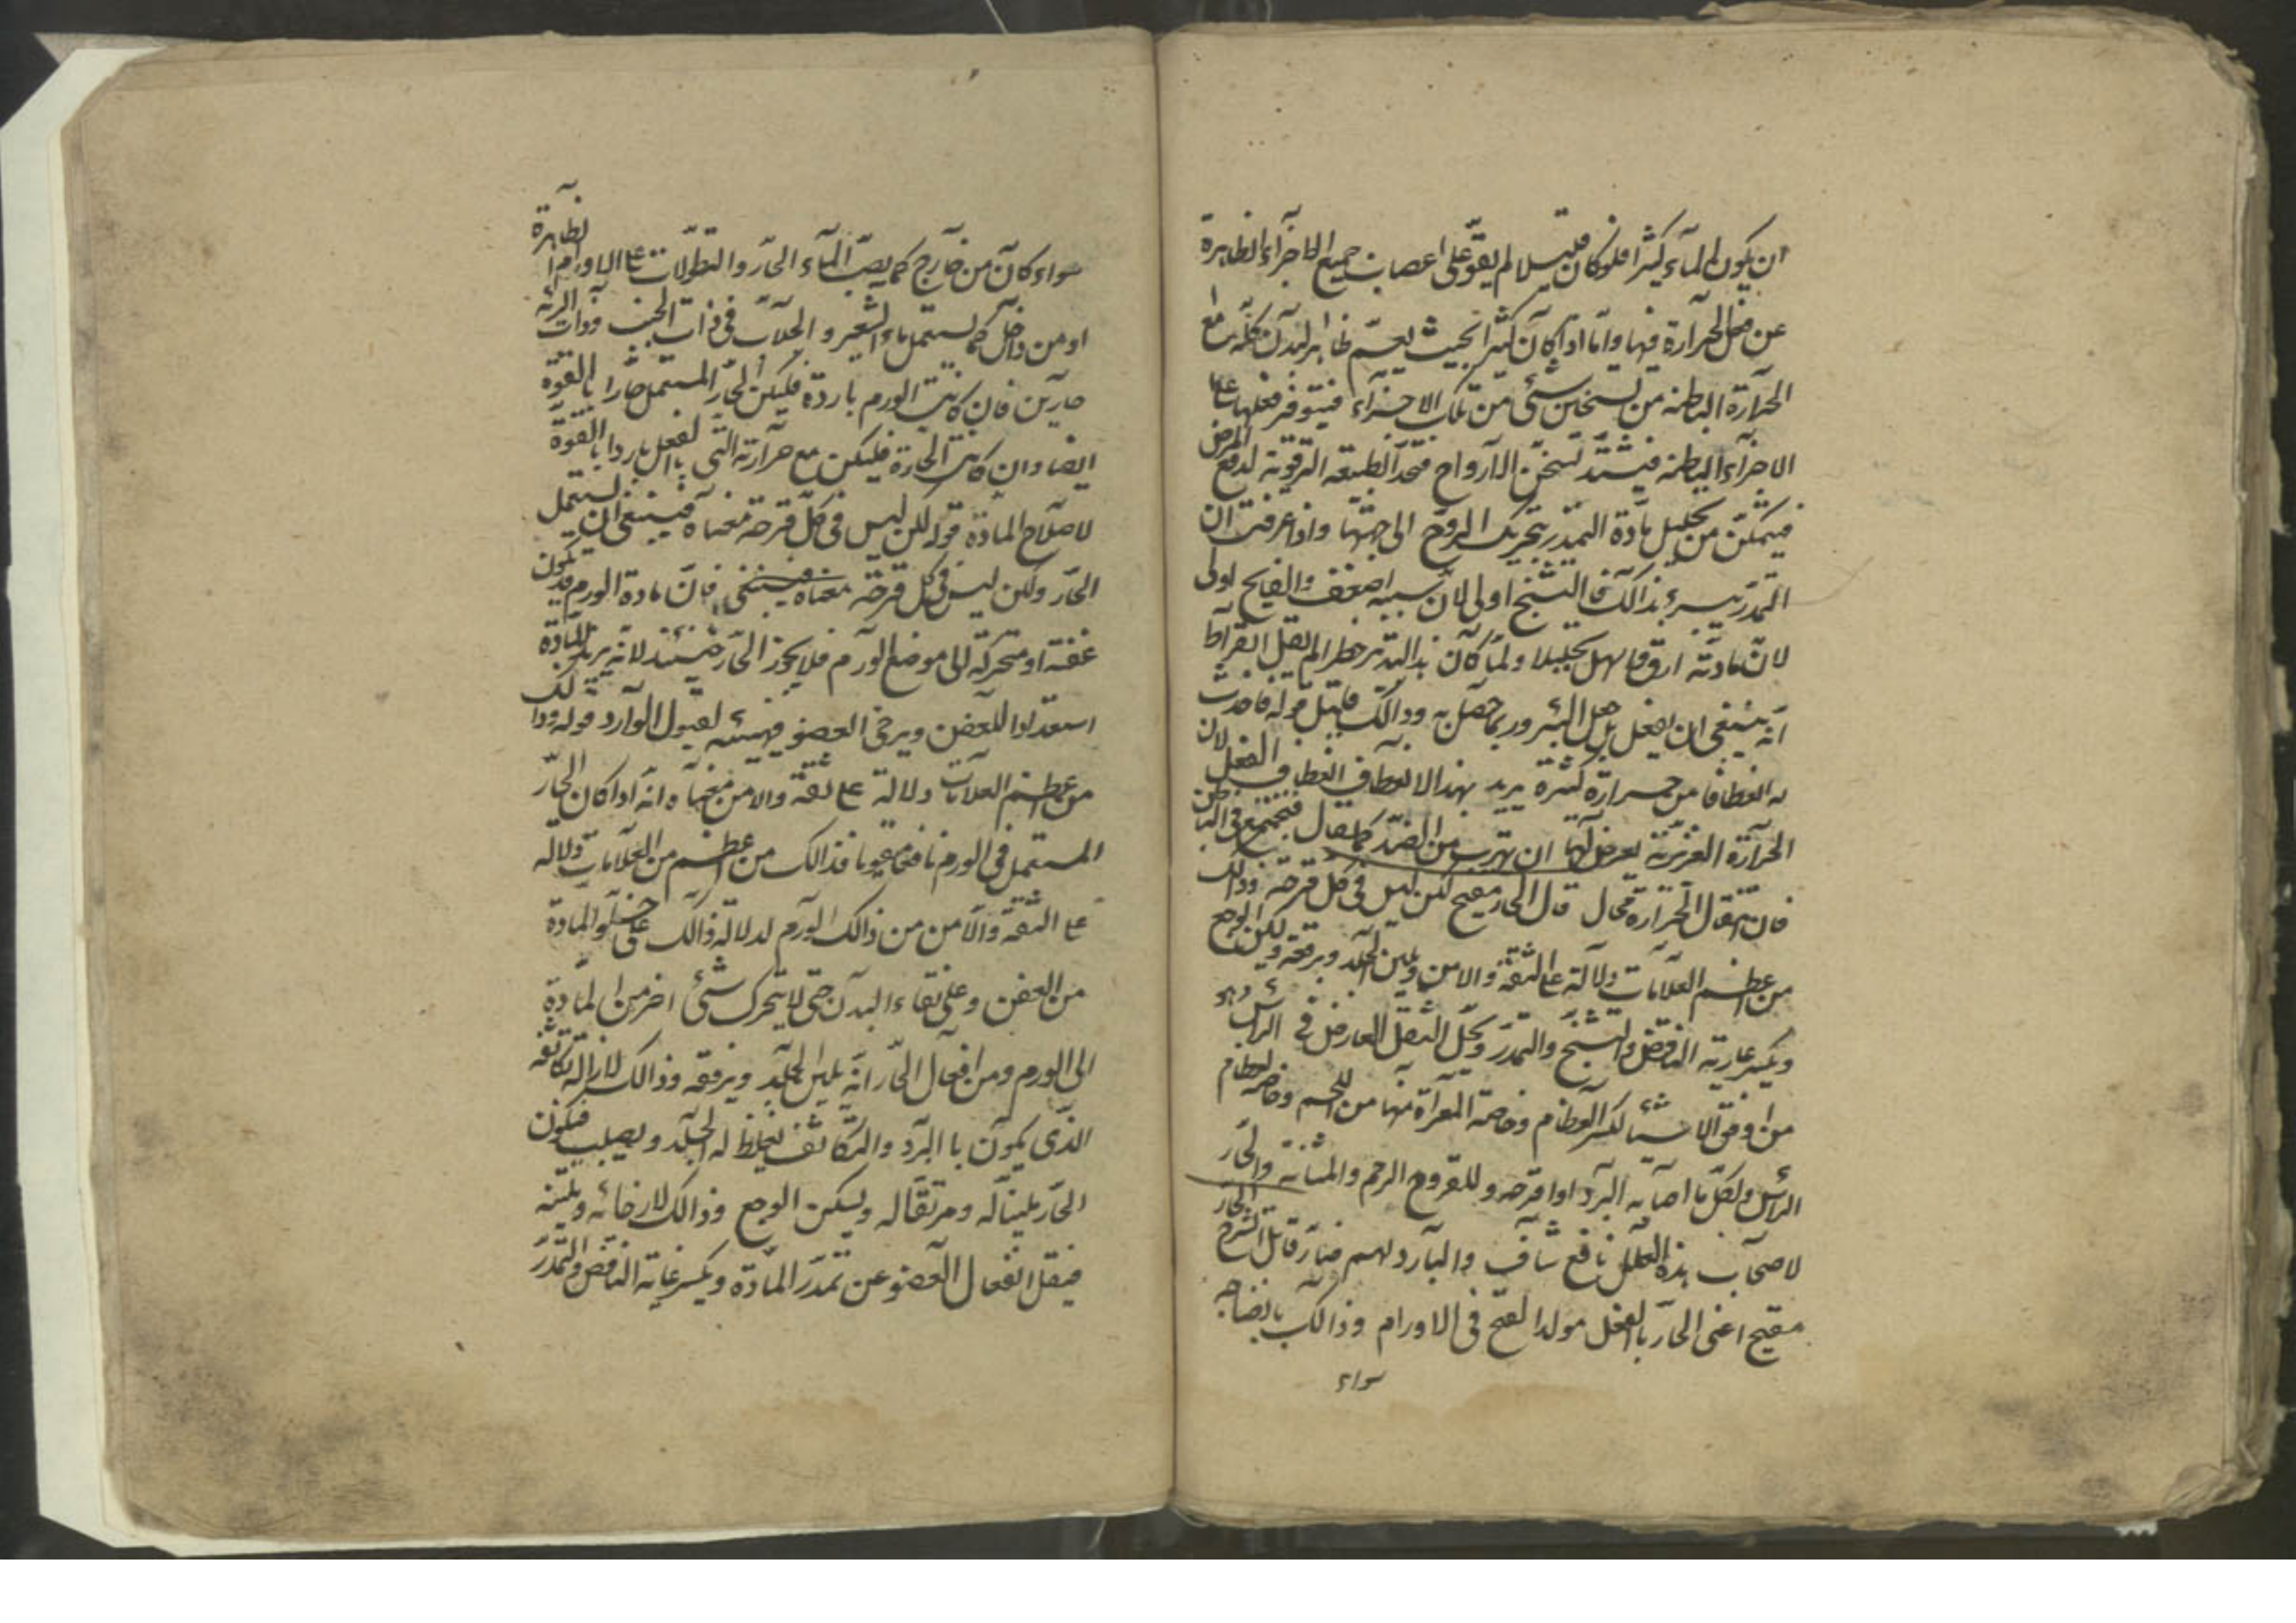 ان يكون الماء كثيرا فلو كان قليلا لم يقو على اعصاب جميع الاجزاء الظاهرة
عن فعل الحرارة فيها واما اذا كان كثيرا بحيث يعم ظاهر البدن كله منع
الحرارة الباطنة من تسخين شئ من تلك الاجزاء فيتوفر فعلها على
الاجزاء الباطنة فيشتد تسخن الارواح الطبيعة لدفع المرض
فيتمكن من تحليل مادة التمدد بتحريك الروح الى جهتها واذا عرفت ان
التمدد يبرء بذالك فالتشنج اولى لان سببه اضعف والفالج اولى
لان مادته ارق فاسهل تحليلا ولما كان هذا التدبير خطرا لم يقل ابقراط
انه ينبغى ان يفعل بل هل البئر وربما حصل به وذالك قبل قوله فاحدث
له انعطافا من حرارة كثيرة يريد بهذا الانعطاف انعطاف الفعل لان
الحرارة الغريزية يعرض لها ان تهرب من الضد كما يقال فتجتمع فى الباطن
فان انتقال الحرارة محال قال الحار مقيح لكن ليس فى كل قرحة وذالك
من اعظم العلامات دلالة على الثقة والامن ويلين الجلد ويرققه ويسكن الوجع
ويكسر عادية النافض والتشنج والتمدد ويحل الثقل العارض فى الراس وهو
من اوفق الاشياء لكسر العظام وخاصة المعراة منها من اللحم وخاصة لعظام
الراس ولكل ما اصابه البرد او اقرحه وللقروح الرحم والمثانة والحار
لاصحاب هذه العلل نافع شاف والبارد لهم ضار قاتل الشرح الحار
مقيح اعنى الحار بالفعل مولد القيح فى الاورام وذالك بانضاجه
سواء
سواء كان من خارج كما يصب الماء الحار والنطولات على الاورام الظاهرة
او من داخل كما يستعمل ماء الشعير والجلاب فى ذات الجنب وذات الرئة
حارين فان كانت الورم باردة فليكن الحار المستعمل حارا بالقوة
ايضا وان كانت الحارة فليكن مع حرارته التى بالفعل باردا بالقوة
لاصلاح المادة قوله لكن ليس فى كل قرحة معناه فينبغى ان يستعمل
الحار ولكن ليس فى كل قرحة معناه فينبغى فان مادة الورم قد تكون
عفنة او متحركة الى موضع الورم فلا يجوز الحار حينئذ لانه يزيد المادة
استعدادا للعفن ويرخى العضو فيهيئه لقبول الوارد قوله وذالك
من اعظم العلامات دلالة على ثقة والامن معناه انه اذا كان الحار
المستعمل فى الورم نافعا فذالك من اعظم من العلامات دلالة
على الثقة والامن من ذالك الورم لدلالة ذالك على خلو المادة
من العفن وعلى نقاء البدن حتى لا يتحرك شئ اخر من المادة
الى الورم ومن افعال الحار انه يلين الجلد ويرققه وذالك لازالة تكاثفه
الذى يكون با البرد والتكاثف يغلظ له الجلد ويصلب فيكون
الحار ملينا له ومرققا له ويسكن الوجع وذالك لارخائه وتلينه
فيقل انفعال العضو عن تمدد المادة ويكسر عادية النافض والتمدد